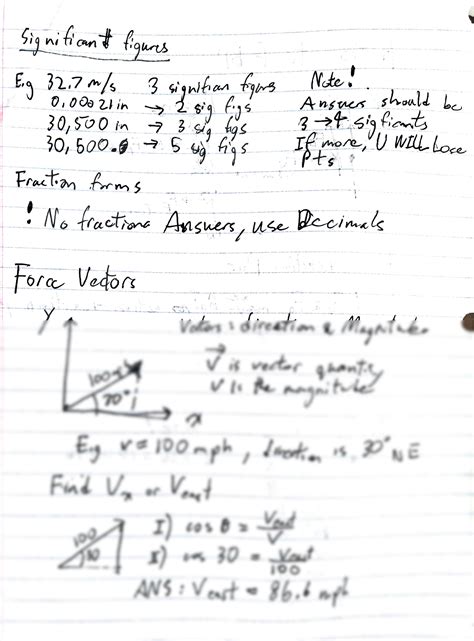 Significant figures
E.g 32.7 m/s 3 signifian figurs Note!
0.00021 in → 2 sig figs Answers should be
30,500 in → 3 sig figs 3 → 4 sigficants
30,500.0 → 5 sig figs If more, U WILL Lose
Pts
Fraction forms
! No fractiona Answers, use Decimals
Force Vectors
y Vector: direction & Magnitude
100 V is vector quantity
30° V is the magnitude
x
E.g v = 100 mph, direction is 30° NE
Find Vx or Veast
100 I) cos θ = Veast/V
30 II) cos 30 = Veast/100
ANS: Veast = 86.6 mph